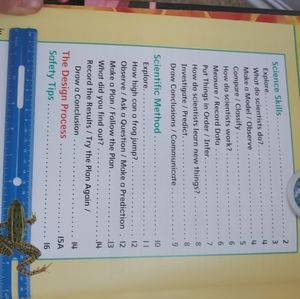 2
Science Skills . . . 3
Explore . . . 4
What do scientists do? . . . 4
Make a Model / Observe . . . 5
Compare / Classify . . . 6
How do scientists work? . . . 6
Measure / Record Data . . . 6
Put Things in Order / Infer . . . 7
How do scientists learn new things? . . . 8
Investigate / Predict . . . 8
Draw Conclusions / Communicate . . . 9
Scientific Method . . . 10
Explore . . . 11
How high can a frog jump? . . . 12
Observe / Ask a Question / Make a Prediction . . . 12
Make a Plan / Follow the Plan . . . 13
What did you find out? . . . 14
Record the Results / Try the Plan Again /
Draw a Conclusion . . . 14
The Design Process . . . 15A
Safety Tips . . . 16